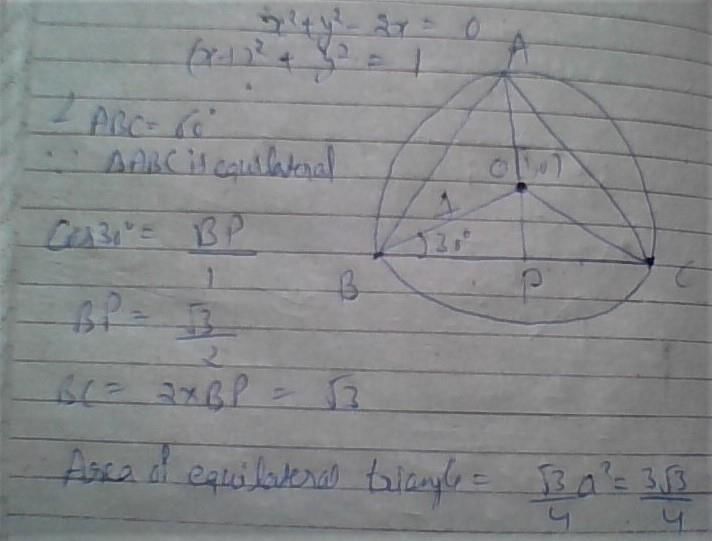 x² + y² - 2x = 0
(x-1)² + y² = 1
∠ABC = 60°
∵ ΔABC is equilateral
Cos30° = BP/1
BP = √3/2
BC = 2xBP = √3
Area of equilateral triangle = √3/4 a² = 3√3/4
A
O(1,0)
1
30°
B
P
C